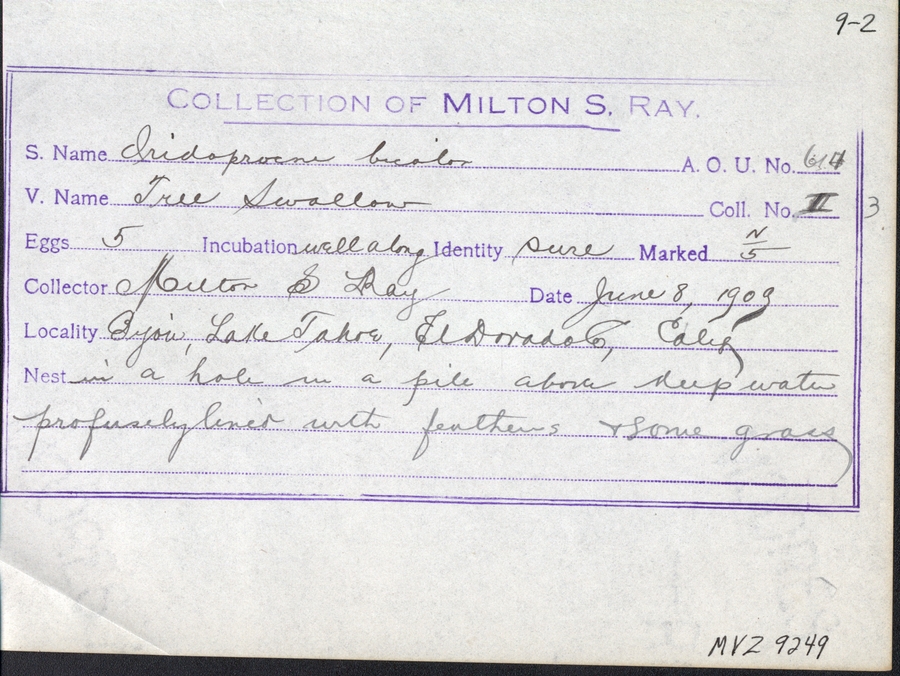 9-2
COLLECTION OF MILTON S. RAY.
S. Name Iridoprocne bicolor A. O. U. No. 614
V. Name Tree Swallow Coll. No. II 3
Eggs 5 Incubation well along Identity sure Marked N/5
Collector Milton S Ray Date June 8, 1909
Locality Bijou, Lake Tahoe, El Dorado Co, Calif
Nest in a hole in a pile above deep water
profusely lined with feathers & some grass
MVZ 9249